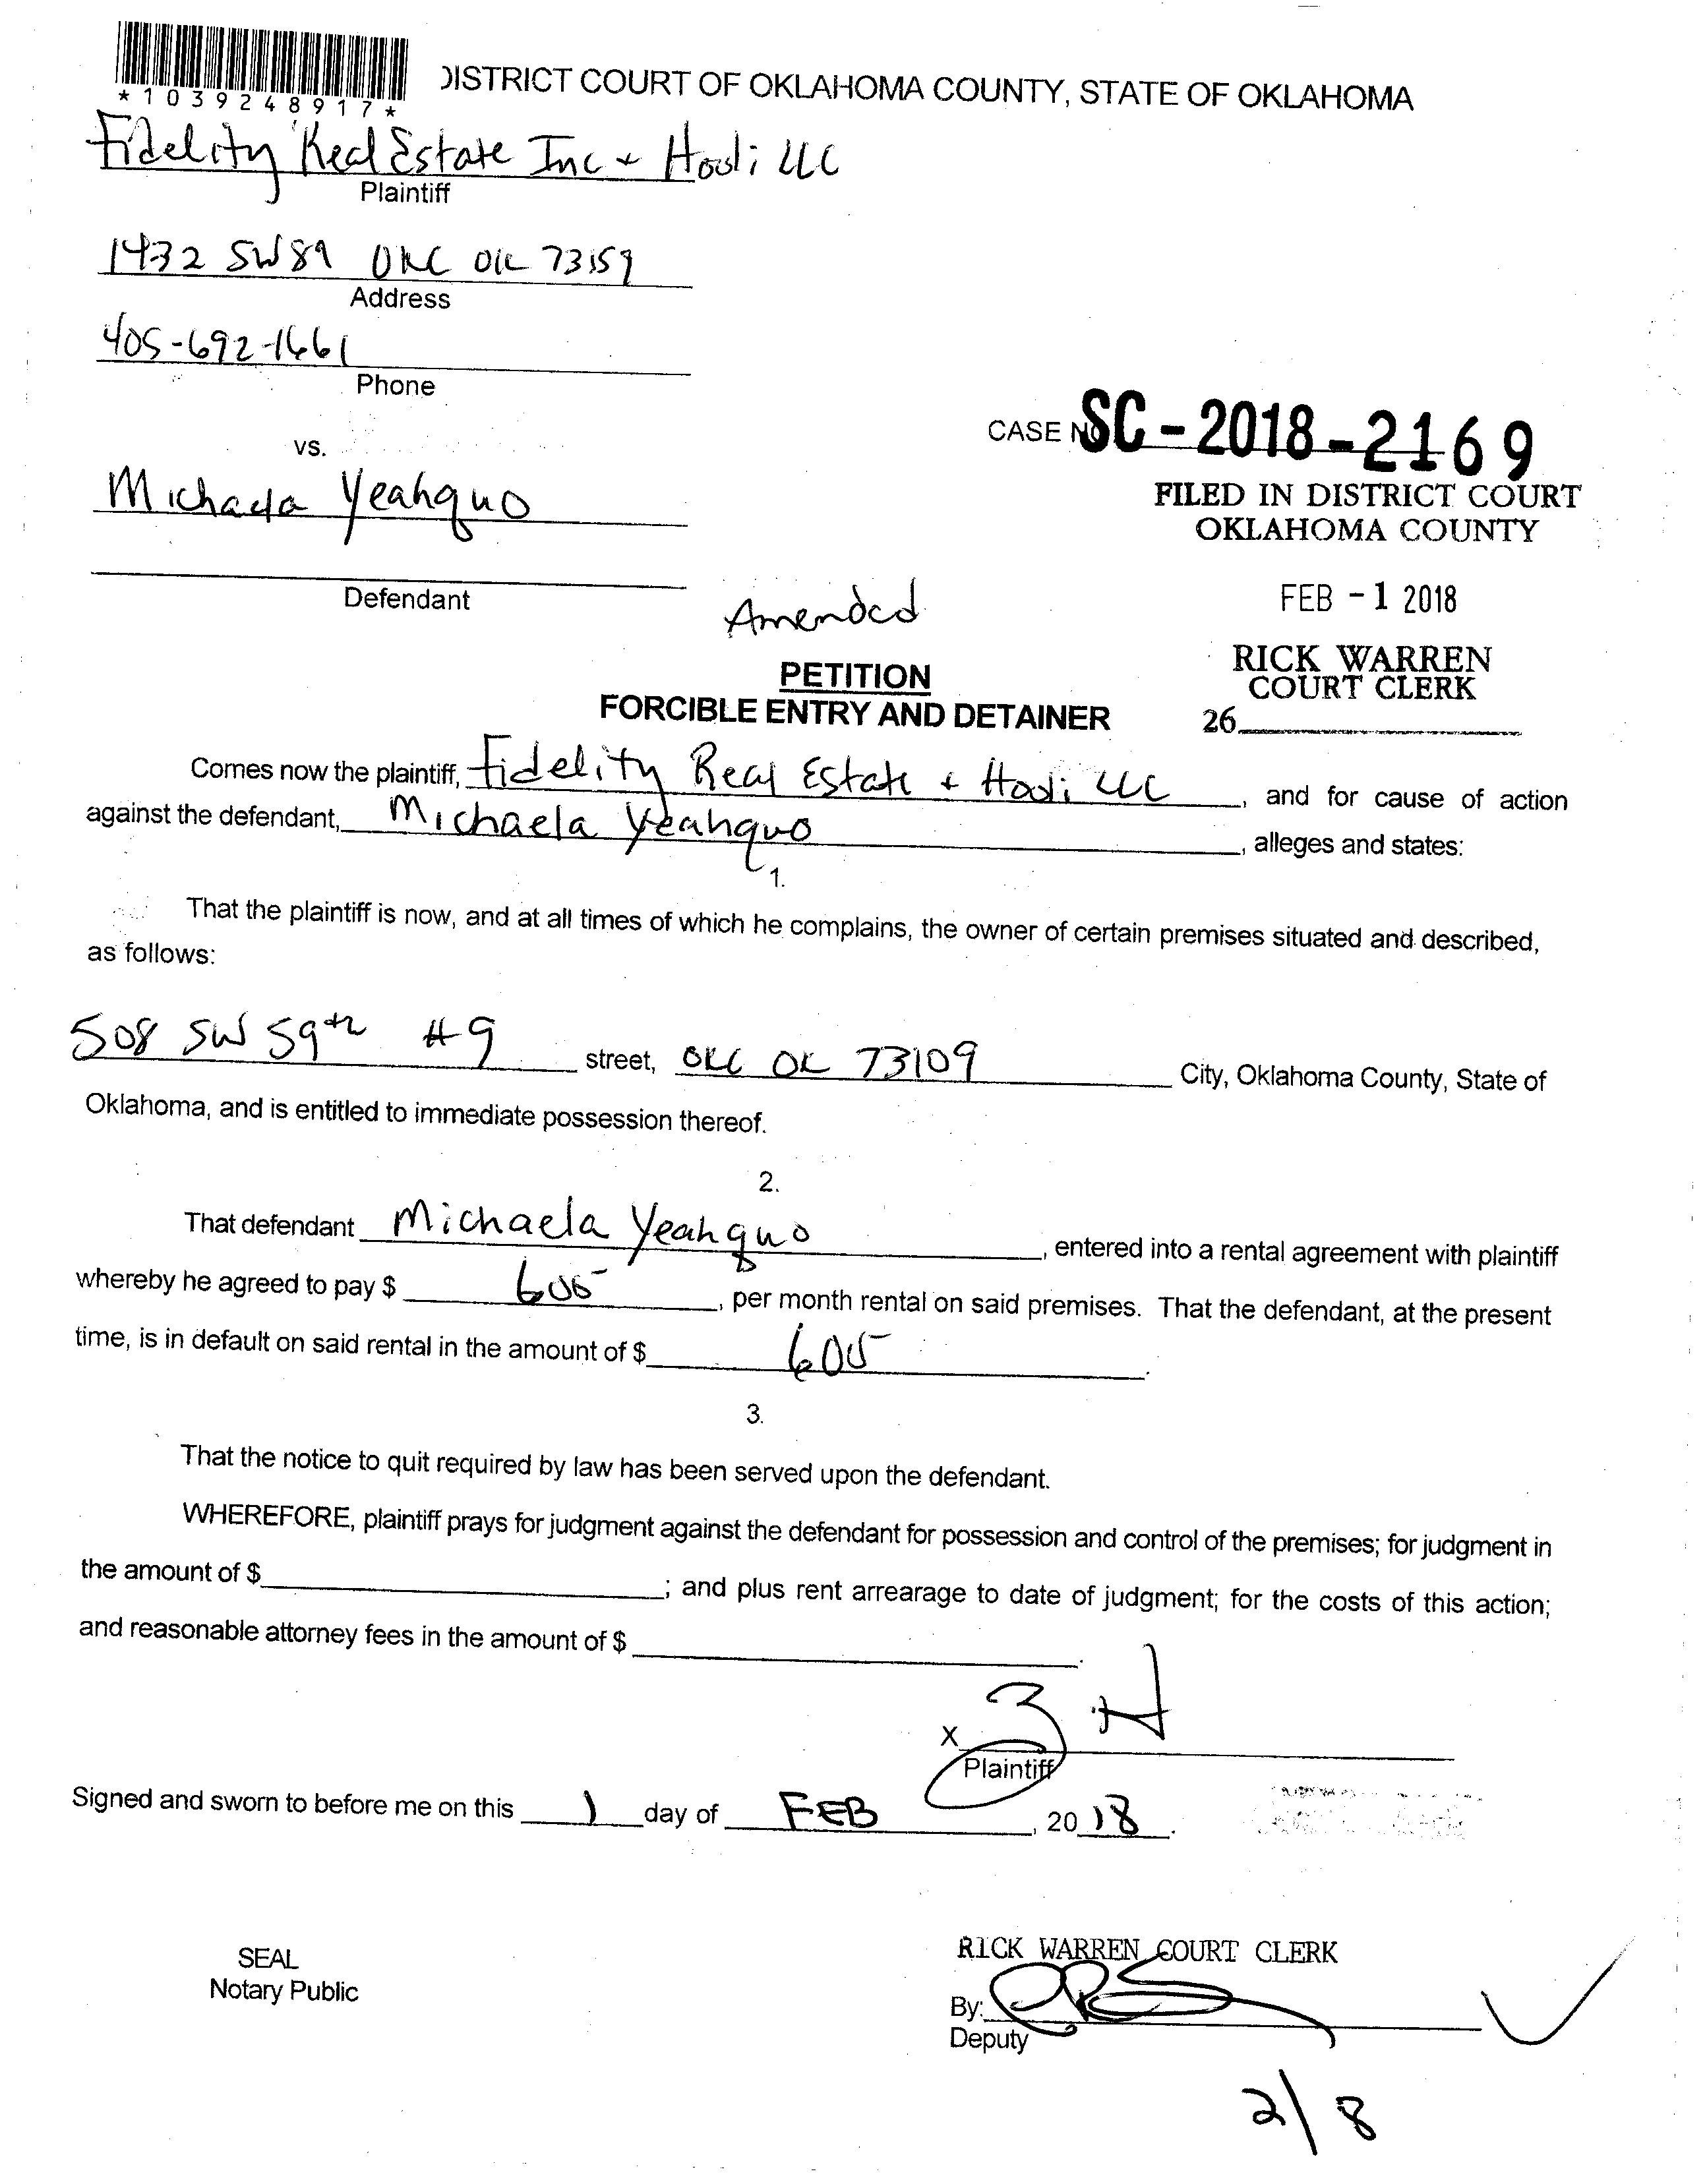 *1039248917*
DISTRICT COURT OF OKLAHOMA COUNTY, STATE OF OKLAHOMA
Fidelity Real Estate Inc + Hooli LLC
Plaintiff
1432 SW 89 OKC OK 73159
Address
405-692-1661
Phone
vs.
CASE NO SC-2018-2169
Michaela Yeahquo
FILED IN DISTRICT COURT
OKLAHOMA COUNTY
Defendant
Amended
FEB -1 2018
PETITION
FORCIBLE ENTRY AND DETAINER
RICK WARREN
COURT CLERK
26
Comes now the plaintiff, Fidelity Real Estate + Hooli LLC, and for cause of action
against the defendant, Michaela Yeahquo, alleges and states:
1.
That the plaintiff is now, and at all times of which he complains, the owner of certain premises situated and described,
as follows:
508 SW 59th #9 street, OKC OK 73109 City, Oklahoma County, State of
Oklahoma, and is entitled to immediate possession thereof.
2.
That defendant Michaela Yeahquo, entered into a rental agreement with plaintiff
whereby he agreed to pay $ , per month rental on said premises. That the defendant, at the present
time, is in default on said rental in the amount of $ .
3.
That the notice to quit required by law has been served upon the defendant.
WHEREFORE, plaintiff prays for judgment against the defendant for possession and control of the premises; for judgment in
the amount of $ ; and plus rent arrearage to date of judgment; for the costs of this action;
and reasonable attorney fees in the amount of $ .
X
Plaintiff
Signed and sworn to before me on this 1 day of FEB, 2018.
SEAL
Notary Public
RICK WARREN COURT CLERK
By:
Deputy
2/8